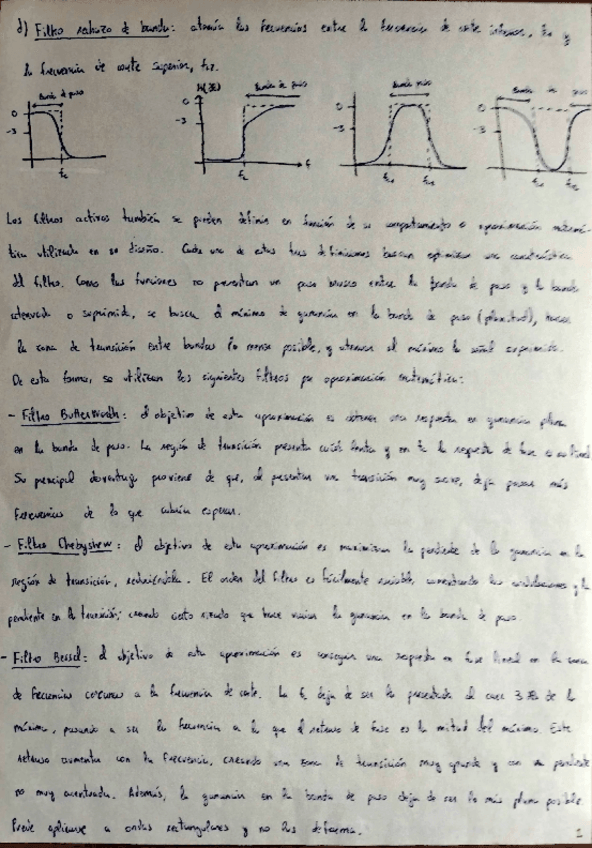 d) Filtro rechazo de banda: atenúa las frecuencias entre la frecuencia de corte inferior, fc1 y
la frecuencia de corte superior, fc2.
Banda de paso
H(dB) Banda de paso
Banda paso
Banda de paso
0 0 0 0
-3 -3 -3 -3
fc fc f fc1 fc2 fc1 fc2
Los filtros activos también se pueden definir en función de su comportamiento o aproximación matemá-
tica utilizada en su diseño. Cada una de estas tres definiciones buscan optimizar una característica
del filtro. Como las funciones no presentan un paso brusco entre la banda de paso y la banda
atenuada o suprimida, se busca el mínimo de ganancia en la banda de paso (planitud), hacer
la zona de transición entre bandas lo menos posible, y atenuar al máximo la señal suprimida.
De esta forma, se utilizan los siguientes filtros por aproximación matemática:
- Filtro Butterworth: el objetivo de esta aproximación es obtener una respuesta en ganancia plana
en la banda de paso. La región de transición presenta caída lenta y en la respuesta de fase es no lineal
Su principal desventaja proviene de que, al presentar una transición muy suave, deja pasar más
frecuencias de lo que cabría esperar.
- Filtro Chebyshew: el objetivo de esta aproximación es maximizar la pendiente de la ganancia en la
región de transición, reduciéndola. El orden del filtro es fácilmente variable, aumentando las ondulaciones y la
pendiente en la transición; creando cierto rizado que hace variar la ganancia en la banda de paso.
- Filtro Bessel: el objetivo de esta aproximación es conseguir una respuesta en fase lineal en la zona
de frecuencias cercanas a la frecuencia de corte. La fc deja de ser la presentada al caer 3 dB de la
máxima, pasando a ser la frecuencia a la que el retraso de fase es la mitad del máximo. Este
retraso aumenta con la frecuencia, creando una zona de transición muy grande y con una pendiente
no muy acentuada. Además, la ganancia en la banda de paso deja de ser lo más plana posible
Puede aplicarse a ondas rectangulares y no las deforma.